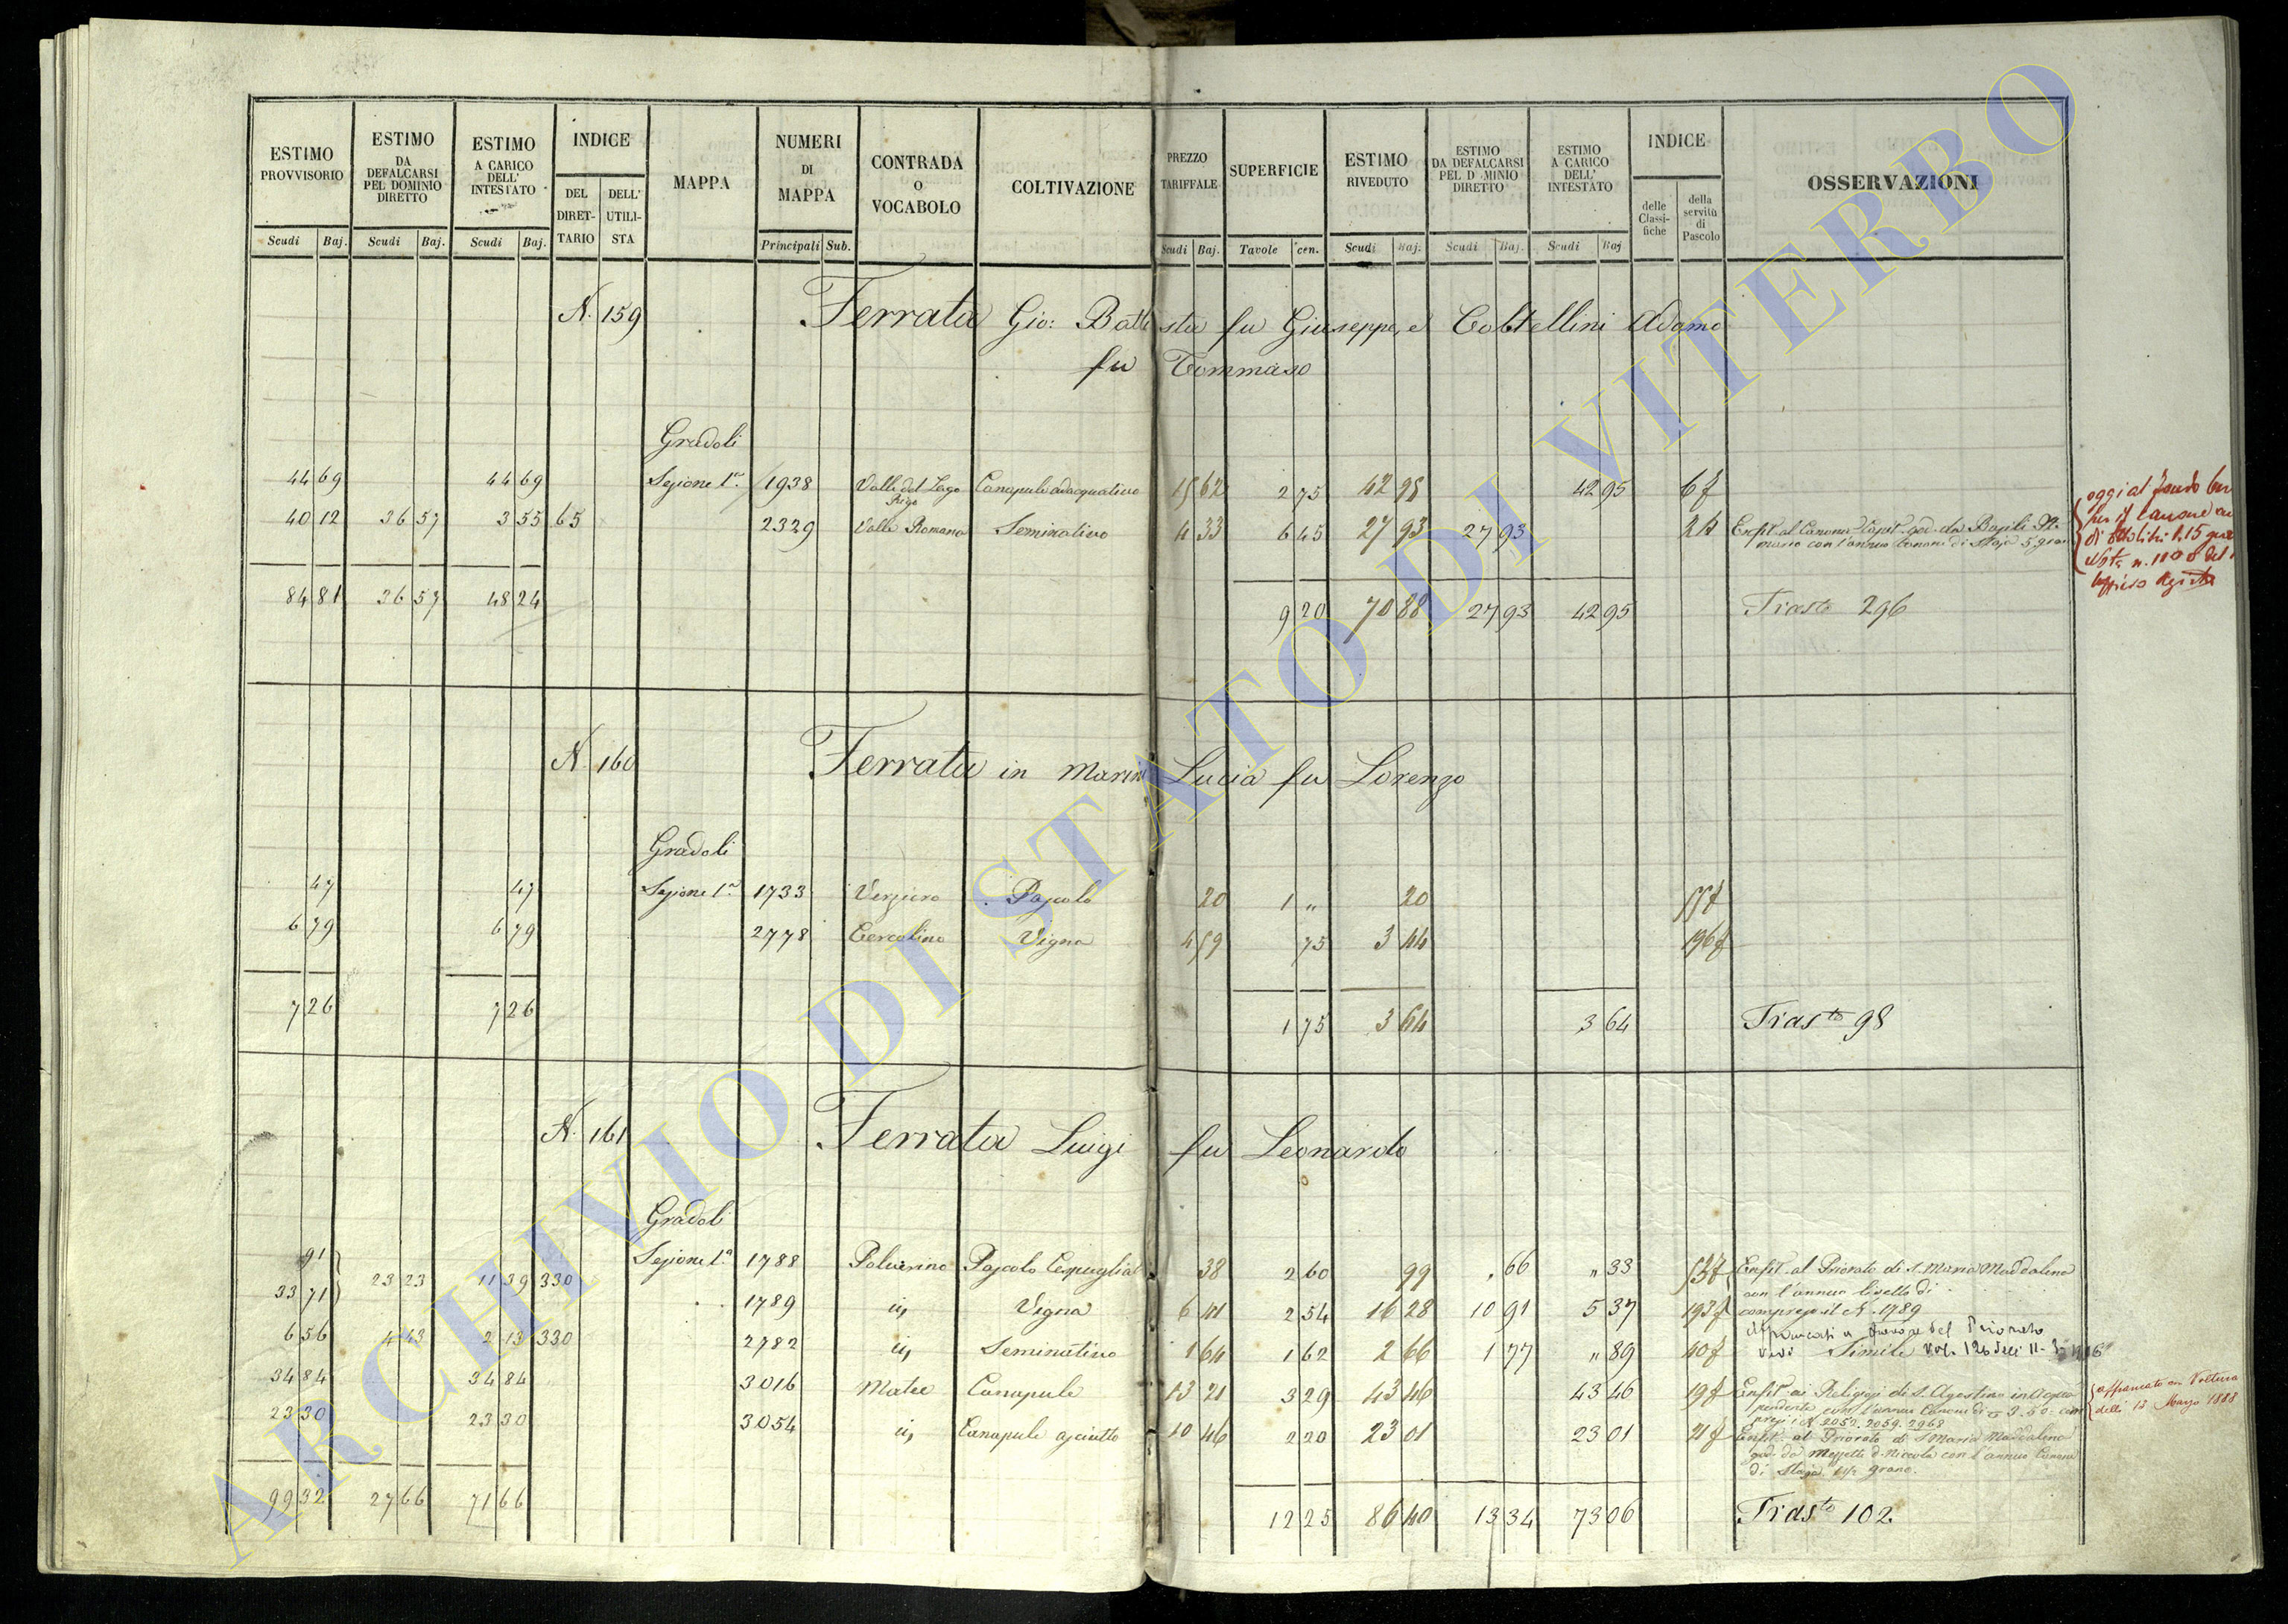 ESTIMO PROVVISORIO | ESTIMO DA DEFALCARSI PEL DOMINIO DIRETTO | ESTIMO A CARICO DELL' INTESTATO | INDICE | MAPPA | NUMERI DI MAPPA | CONTRADA O VOCABOLO | COLTIVAZIONE | PREZZO TARIFFALE | SUPERFICIE | ESTIMO RIVEDUTO | ESTIMO DA DEFALCARSI PEL D MINIO DIRETTO | ESTIMO A CARICO DELL' INTESTATO | INDICE | OSSERVAZIONI
DEL DIRETTARIO | DELL' UTILISTA | delle Classifiche | della servitù di Pascolo
Scudi | Baj. | Scudi | Baj. | Scudi | Baj. | Principali | Sub. | Scudi | Baj. | Tavole | cen. | Scudi | Baj. | Scudi | Baj. | Scudi | Baj
N. 159 Ferrata Gio: Battista fu Giuseppe, e Coltellini Adamo
fu Tommaso
Gradoli
44 69 | 44 69 | Sezione 1a. | 1938 | Valle del Lago Rigo | Canapule adacquativo | 15 62 | 2 75 | 42 95 | 42 95 | 6 f
40 12 | 36 57 | 3 55 | 65 | 2329 | Valle Romana | Seminativo | 4 33 | 6 45 | 27 93 | 27 93 | Enfit. al Canonic. Capit. god. da
con l'annuo Canone di Staja 5
84 81 | 36 57 | 48 24 | 9 20 | 70 88 | 27 93 | 42 95 | Trasto 296
oggi al fondo
per il Canone
di Ettolitri 1.15
N. 160 Ferrata in Marini Lucia fu Lorenzo
Gradoli
47 | 47 | Sezione 1a. | 1733 | Verziero | Pascolo | 20 | 1 „ | 20 | 55 f
6 79 | 6 79 | 2778 | Cercolino | Vigna | 4 59 | 75 | 3 44 | 196 f
7 26 | 7 26 | 1 75 | 3 64 | 3 64 | Trasto 98
N. 161 Ferrata Luigi fu Leonardo
Gradoli
91 | Sezione 1a. | 1788 | Polverino | Pascolo Cespugliat | 38 | 2 60 | 99 | „ 66 | „ 33 | 53 f | Enfit. al Priorato di S. Maria Maddalena
con l'annuo livello di
33 71 | 23 23 | 11 39 | 330 | 1789 | id, | Vigna | 6 41 | 2 54 | 16 28 | 10 91 | 5 37 | 193 f | compreso il N. 1789
a favore del Priorato
6 56 | 4 43 | 2 13 | 330 | 2782 | id, | Seminativo | 1 64 | 1 62 | 2 66 | 1 77 | „ 89 | 40 f | vedi Simile Vol. 126 delli 11-
34 84 | 34 84 | 3016 | Mateo | Canapule | 13 21 | 3 29 | 43 46 | 43 46 | 19 f | Enfit. ai Religiosi di S. Agostino in Acqua
pendente con l'annuo Canone di 3.50 com
presi i N. 2052. 2059. 2968
affrancato con Voltura
delli 13 Marzo 1888
23 30 | 23 30 | 3054 | id, | Canapule asciutto | 10 46 | 2 20 | 23 01 | 23 01 | 21 f | Enfit. al Priorato di S. Maria Maddalena
god. da Mezzetti D. Niccola con l'annuo Canone
di Staja grano.
99 32 | 27 66 | 71 66 | 12 25 | 86 40 | 13 34 | 73 06 | Trasto 102
ARCHIVIO DI STATO DI VITERBO